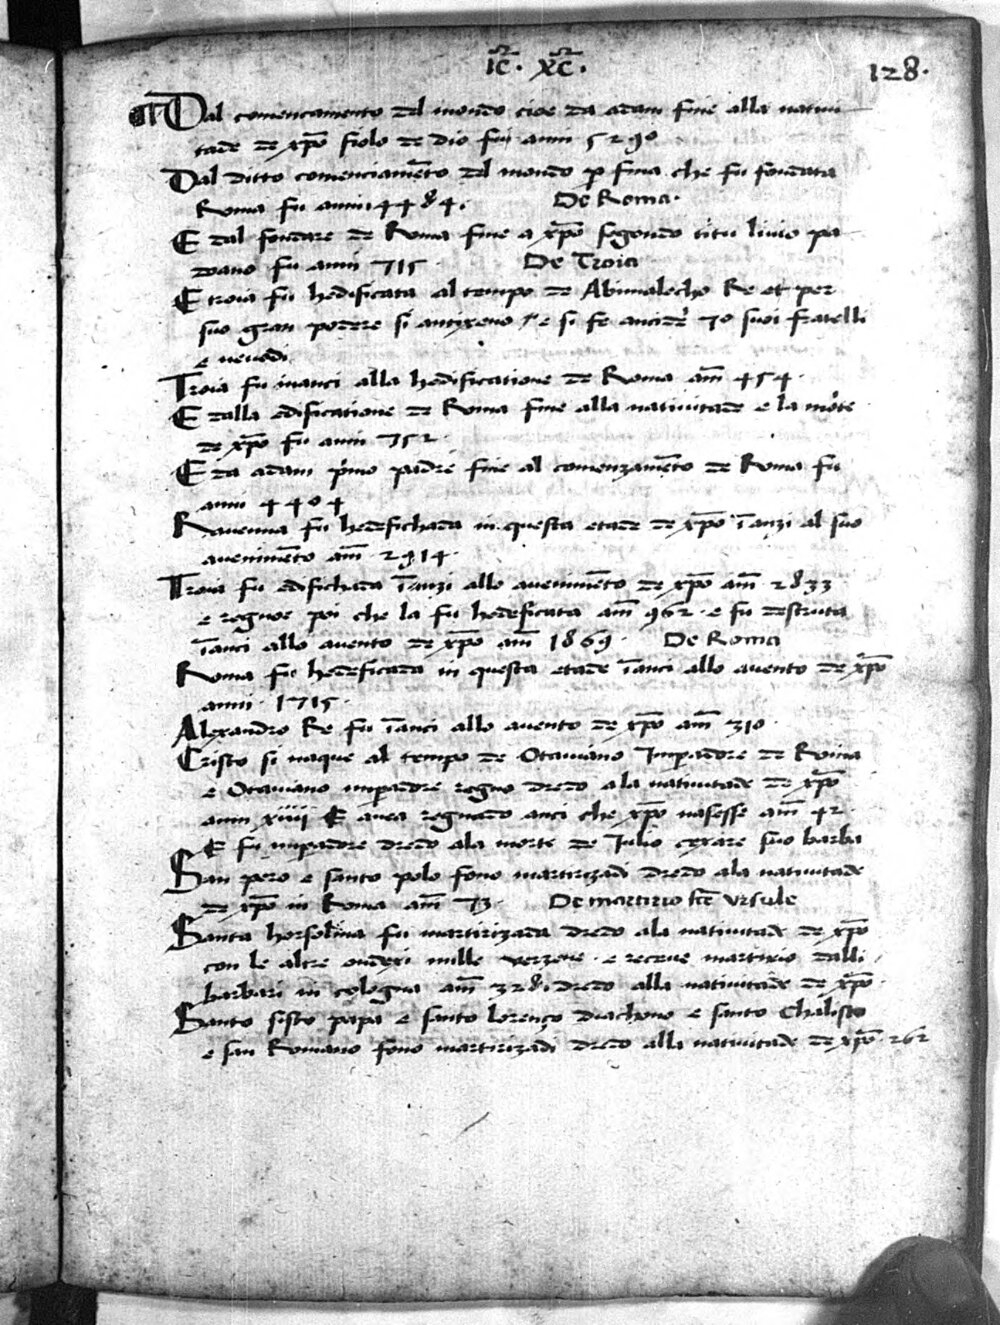 Ic̄. Xc̄.
128.
Dal comencamento del mondo cioe da adam fine alla nativi
tade de xp̄o fiolo de dio fu anni 5290
Dal ditto comenciamēto del mondo p̱ fina che fu fondata
Roma fu anni 4484. De Roma.
E dal fondare de Roma fine a xp̄o segondo titu livio pa
doano fu anni 715 De Troia
E troia fu hedificata al tempo de Abimalecho Re et per
suo gran podere si e si fe ancider 70 suoi fratelli
e nevodi.
Troia fu inanci alla hedificatione de Roma am̄ 454.
E dalla edificatione de Roma fine alla nativitade e la mōte
de xp̄o fu anni 752.
E da adam p̄mo padre fine al comenzamēto de Roma fu
anni 4404
Ravenna fu hedefichada in questa etade de xp̄o īanzi al suo
avenimēto am̄ 2914.
Troia fu edifichada īanzi allo avenimēto de xp̄o am̄ 2833
e regnoe poi che la fu hedeficata am̄ 962. e fu destruta
īanci allo avento de xp̄o am̄ 1869. De Roma
Roma fu hedeficada in questa etade īanci allo avento de xp̄o
anni. 1715.
Alexandro Re fu īanci allo avento de xp̄o am̄ 310.
Cristo si naque al tempo de Otaviano Impadore de Roma
e Otaviano impadore regno dredo a la nativitade de xp̄o
anni xiiii E avea regnado anci che xp̄o nasesse am̄ 42.
E fu impadore dredo ala morte de Iulio cexare suo barba
San pero e santo polo fono martirizadi dredo ala nativitade
de xp̄o in Roma am̄ 73. De martirio sc̄e Ursule
Santa horsolina fu martirizada dredo ala nativitade de xp̄o
con le altre ondexi mille verzene. e receve martirio dalli
barbari in cologna am̄ 328. dredo alla nativitade de xp̄o.
Santo sisto papa e santo lorenço diachono e santo Chalisto
e san Romano fono martirizadi dredo alla nativitade de xp̄o 262